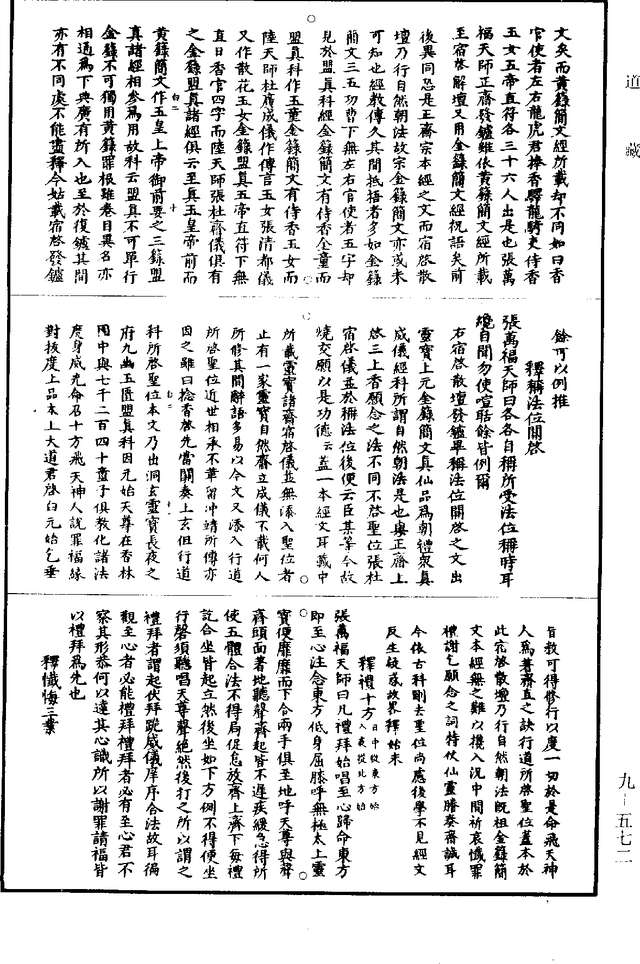 道藏
文矣而黃籙簡文經所載却不同如曰香
官使者左右龍虎君捧香驛龍騎吏侍香
玉女五帝直符各三十六人出是也張萬
福天師正齋發鑪雖依黃籙簡文經所載
至宿啓解壇又用金籙簡文經祝語矣前
後異同恐是正齋宗本經之文而宿啓散
壇乃行自然朝法故宗金籙簡文亦或未
可知也經教傳久其間抵捂者多如金籙
簡文三五功曹下無左右官使者五字却
見於盟真科經金籙簡文有侍香金童而
盟真科作玉童金籙簡文有侍香玉女而
陸天師杜廣成儀作傳言玉女張清都儀
又作散花玉女金籙盟真五帝直符下無
直日香官四字而陸天師張杜齋儀俱有
之金籙盟真諸經俱云至真玉皇帝前而
黃籙簡文作玉皇上帝御前要之三籙盟
真諸經相參爲用故科云盟真不可單行
金籙不可獨用黃籙罪根雖卷目異名亦
相通爲下典廣有所入也至於復鑪其間
亦有不同處不能盡釋今姑載宿啓發鑪
餘可以例推
釋稱法位開啓
張萬福天師曰各各自稱所受法位稱時耳
纔自聞勿使喧聒餘皆例爾
右宿啓散壇發鑪畢稱法位開啓之文出
靈寶上元金籙簡文真仙品爲朝禮衆真
威儀經科所謂自然朝法是也與正齋上
啓三上香願念之法不同不啓聖位張杜
宿啓儀並於稱法位後便云臣某等今故
燒香願以是功德云蓋一本經文耳藏中
所載靈寶諸齋宿啓儀並無添入聖位者
止有一家靈寶自然齋立成儀不載何人
所修其間辭語多易以今文又添入行道
所啓聖位近世相承不革留冲靖所傳亦
因之雖曰捻香啓先當關奏上玄但行道
科所啓聖位本文乃出洞玄靈寶長夜之
府九幽玉匱盟真科因元始天尊在香林
園中與七千二百四十童子俱教化諸法
度身威光命召十方飛天神人說罪福緣
對拔度上品太上大道君啓白元始乞垂
旨教可得修行以度一切於是命飛天神
人爲著齋直之訣行道所啓聖位蓋本於
此宿啓散壇乃行自然朝法既祖金籙簡
文本經無之難以攙入況中間祈哀懺罪
禮謝乞願念之詞特伏仙靈謄奏齋誠耳
今依古科刪去聖位尚慮後學不見經文
反生疑惑故畧釋始末
釋禮十方 日中從東方始 入夜從北方始
張萬福天師曰凡禮拜始唱至心歸命東方
即至心注念東方低身屈膝呼無極太上靈
寶便靡靡而下合兩手俱至地呼天尊與聲
齊頭面著地聽聲齊起皆不遲疾緩急得所
使五體合法不得局促怠放齊上齊下每禮
訖合坐皆起立然後坐如下方例不得便坐
行磬須聽唱天尊聲絶然後打之所以謂之
禮拜者謂起伏拜跪威儀庠序合法故耳徧
觀至心者必能禮拜禮拜者必有至心君不
察其形恭何以達其心識所以謝罪請福皆
以禮拜爲先也
釋懺悔三業
九－五七二